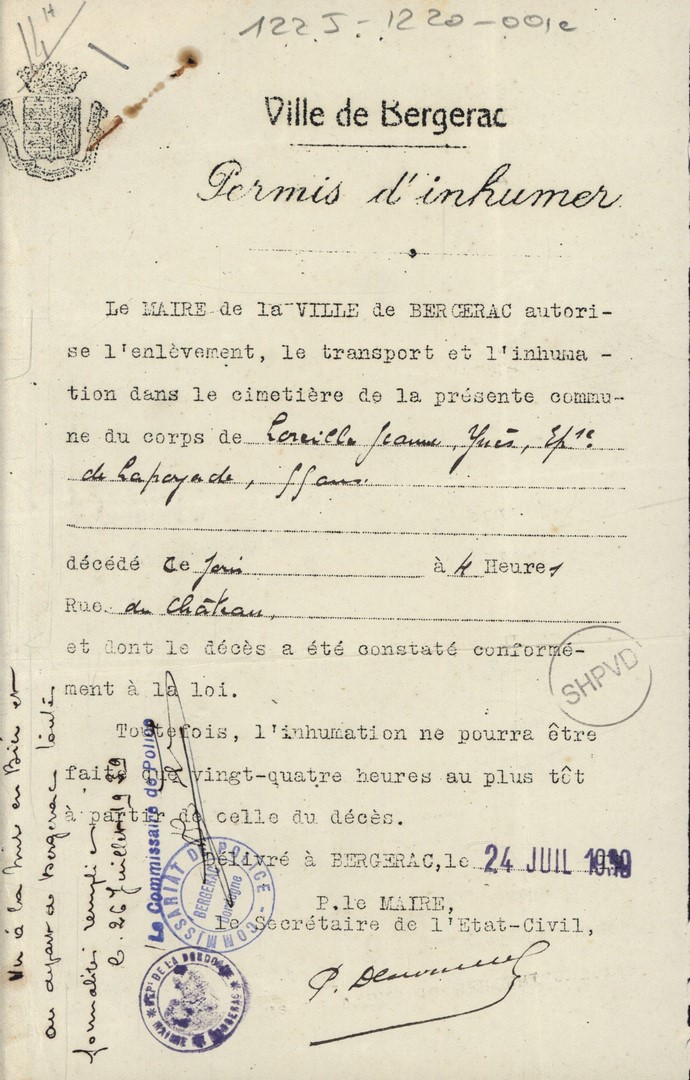 14 H
122 J - 1220 - 001e
Ville de Bergerac
Permis d'inhumer
Le MAIRE de la VILLE de BERGERAC autori-
se l'enlèvement, le transport et l'inhuma -
tion dans le cimetière de la présente commu-
ne du corps de Loreille Jeanne, Ynès, Epse
de Lapoyade,
décédé Ce jour à 4 Heures
Rue du Château,
et dont le décès a été constaté conformé-
ment à la loi.
SHPVD
Toutefois, l'inhumation ne pourra être
faite que vingt-quatre heures au plus tôt
à partir de celle du décès.
Délivré à BERGERAC, le 24 JUIL 1939
P. le MAIRE,
le Secrétaire de l'Etat-Civil,
Vu à la mise en Bière et
au départ de Bergerac toutes
formalités remplies
B. 26 Juillet 1939
Le Commissaire de Police
COMMISSARIAT DE POLICE
BERGERAC
Dordogne
DEPT DE LA DORDOGNE
MAIRIE DE BERGERAC